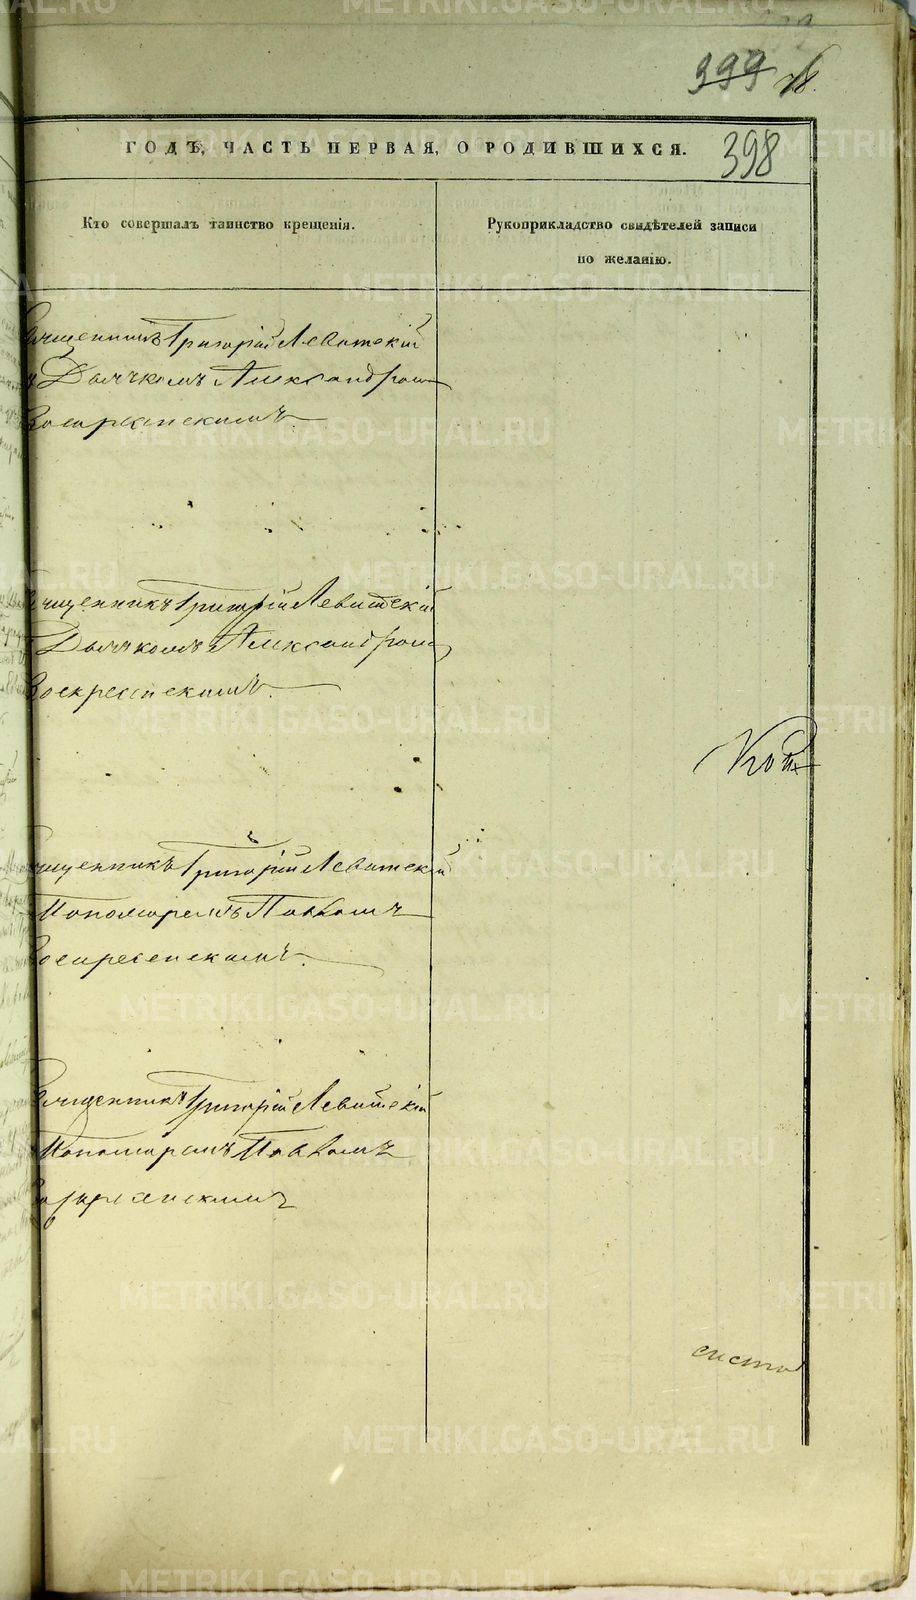 399 78.
ГОДЪ, ЧАСТЬ ПЕРВАЯ, О РОДИВШИХСЯ.
398
Кто совершалъ таинство крещенія.
Рукоприкладство свидѣтелей записи
по желанію.
Священникъ Григорій Левитскій
съ Дьячкомъ Александромъ
Воскресенскимъ.
Священникъ Григорій Левитскій
Дьячкомъ Александромъ
Воскресенскимъ.
Священникъ Григорій Левитскій
Пономаремъ Павломъ
Воскресенскимъ.
Священникъ Григорій Левитскій
Пономаремъ Павломъ
Воскресенскимъ
METRIKI.GASO-URAL.RU